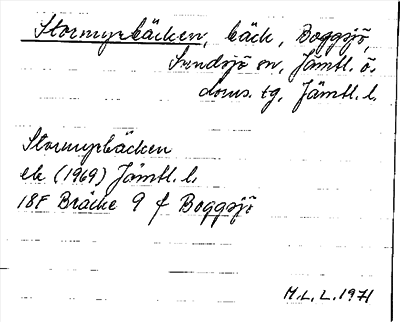 Stormyrbäcken, bäck, Boggsjö,
Sundsjö sn, Jämtl. ö.
doms. tg, Jämtl. l.
Stormyrbäcken
ek (1969) Jämtl. l.
18F Bräcke 9 f Boggsjö
M.L.L. 1971